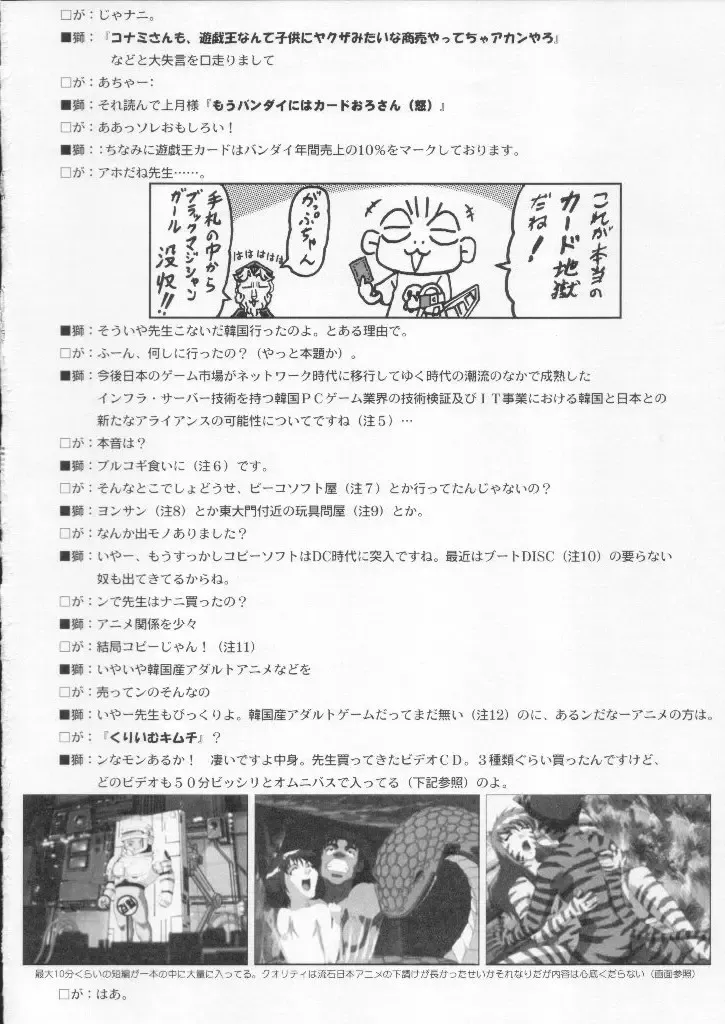 □が：じゃナニ。
■獅：『コナミさんも、遊戯王なんて子供にヤクザみたいな商売やってちゃアカンやろ』
などと大失言を口走りまして
□が：あちゃー：
■獅：それ読んで上月様『もうバンダイにはカードおろさん（怒）』
□が：ああっソレおもしろい！
■獅：：ちなみに遊戯王カードはバンダイ年間売上の10％をマークしております。
□が：アホだね先生……。
これが本当の
カード地獄
だね！
がっぷちゃん
はははは
手札の中から
ブラックマジシャン
ガール 没収!!
■獅：そういや先生こないだ韓国行ったのよ。とある理由で。
□が：ふーん、何しに行ったの？（やっと本題か）。
■獅：今後日本のゲーム市場がネットワーク時代に移行してゆく時代の潮流のなかで成熟した
インフラ・サーバー技術を持つ韓国ＰＣゲーム業界の技術検証及びＩＴ事業における韓国と日本との
新たなアライアンスの可能性についてですね（注５）…
□が：本音は？
■獅：プルコギ食いに（注６）です。
□が：そんなとこでしょどうせ、ビーコソフト屋（注７）とか行ってたんじゃないの？
■獅：ヨンサン（注8）とか東大門付近の玩具問屋（注9）とか。
□が：なんか出モノありました？
■獅：いやー、もうすっかしコピーソフトはDC時代に突入ですね。最近はブートDISC（注10）の要らない
奴も出てきてるからね。
□が：ンで先生はナニ買ったの？
■獅：アニメ関係を少々
□が：結局コピーじゃん！（注11）
■獅：いやいや韓国産アダルトアニメなどを
□が：売ってンのそんなの
■獅：いやー先生もびっくりよ。韓国産アダルトゲームだってまだ無い（注12）のに、あるンだなーアニメの方は。
□が：『くりいむキムチ』？
■獅：ンなモンあるか！　凄いですよ中身。先生買ってきたビデオＣＤ。３種類ぐらい買ったんですけど、
どのビデオも５０分ビッシリとオムニバスで入ってる（下記参照）のよ。
最大10分くらいの短編が一本の中に大量に入ってる。クオリティは流石日本アニメの下請けが長かったせいかそれなりだが内容は心底くだらない（画面参照）
□が：はあ。